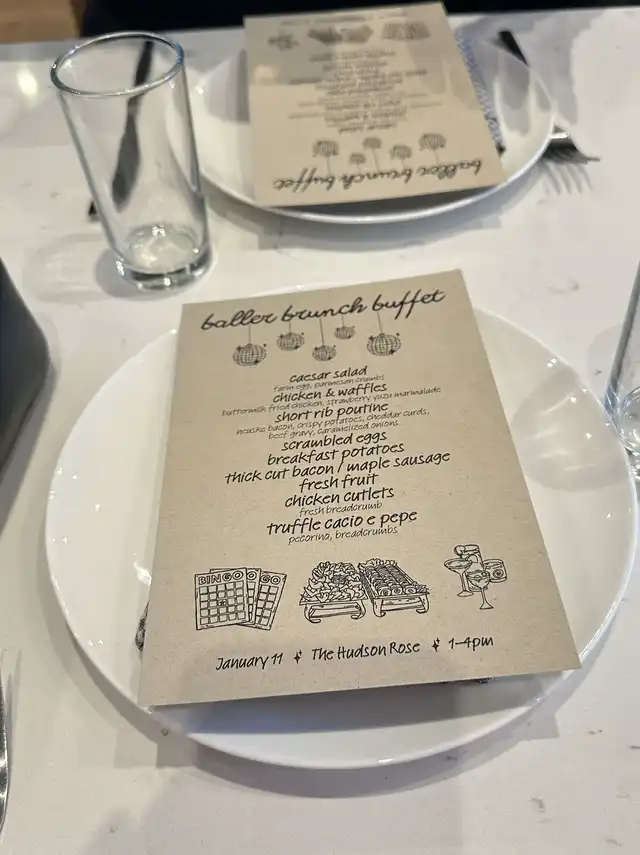 baller brunch buffet
caesar salad
farm egg, parmesan crumbs
chicken & waffles
buttermilk fried chicken, strawberry yuzu marmalade
short rib poutine
neuske bacon, crispy potatoes, cheddar curds,
beef gravy, caramelized onions
scrambled eggs
breakfast potatoes
thick cut bacon / maple sausage
fresh fruit
chicken cutlets
fresh breadcrumb
truffle cacio e pepe
pecorino, breadcrumbs
BINGO
January 11 ✦ The Hudson Rose ✦ 1-4pm
baller brunch buffet
caesar salad